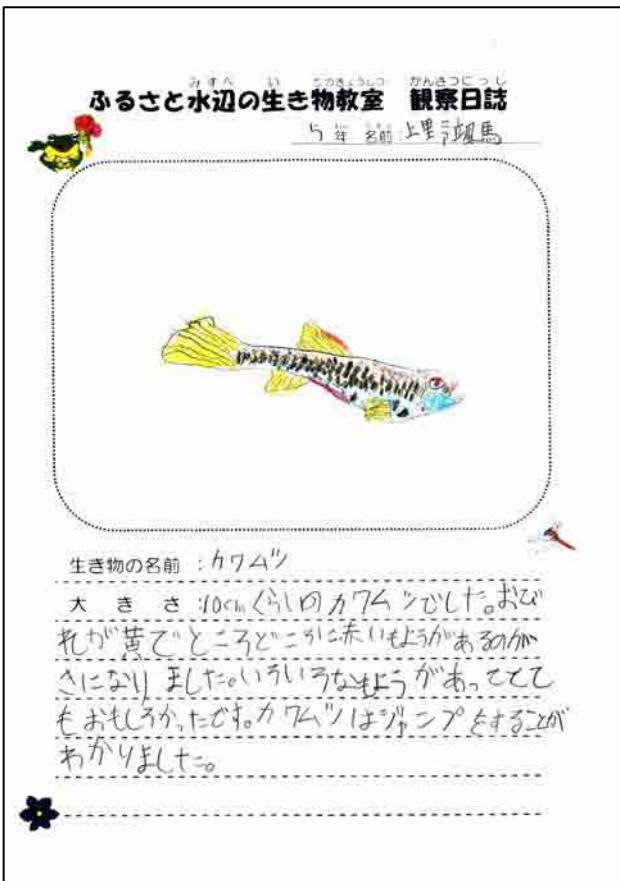 みずべ い ものきょうしつ かんさつにっし
ふるさと水辺の生き物教室 観察日誌
5年 名前 上里 颯馬
生き物の名前 : カワムツ
大きさ : 10cmくらいのカワムツでした。おび
れが黄でところどころに赤いもようがあるのが
きになりました。いろいろなもようがあってとて
もおもしろかったです。カワムツはジャンプをすることが
わかりました。